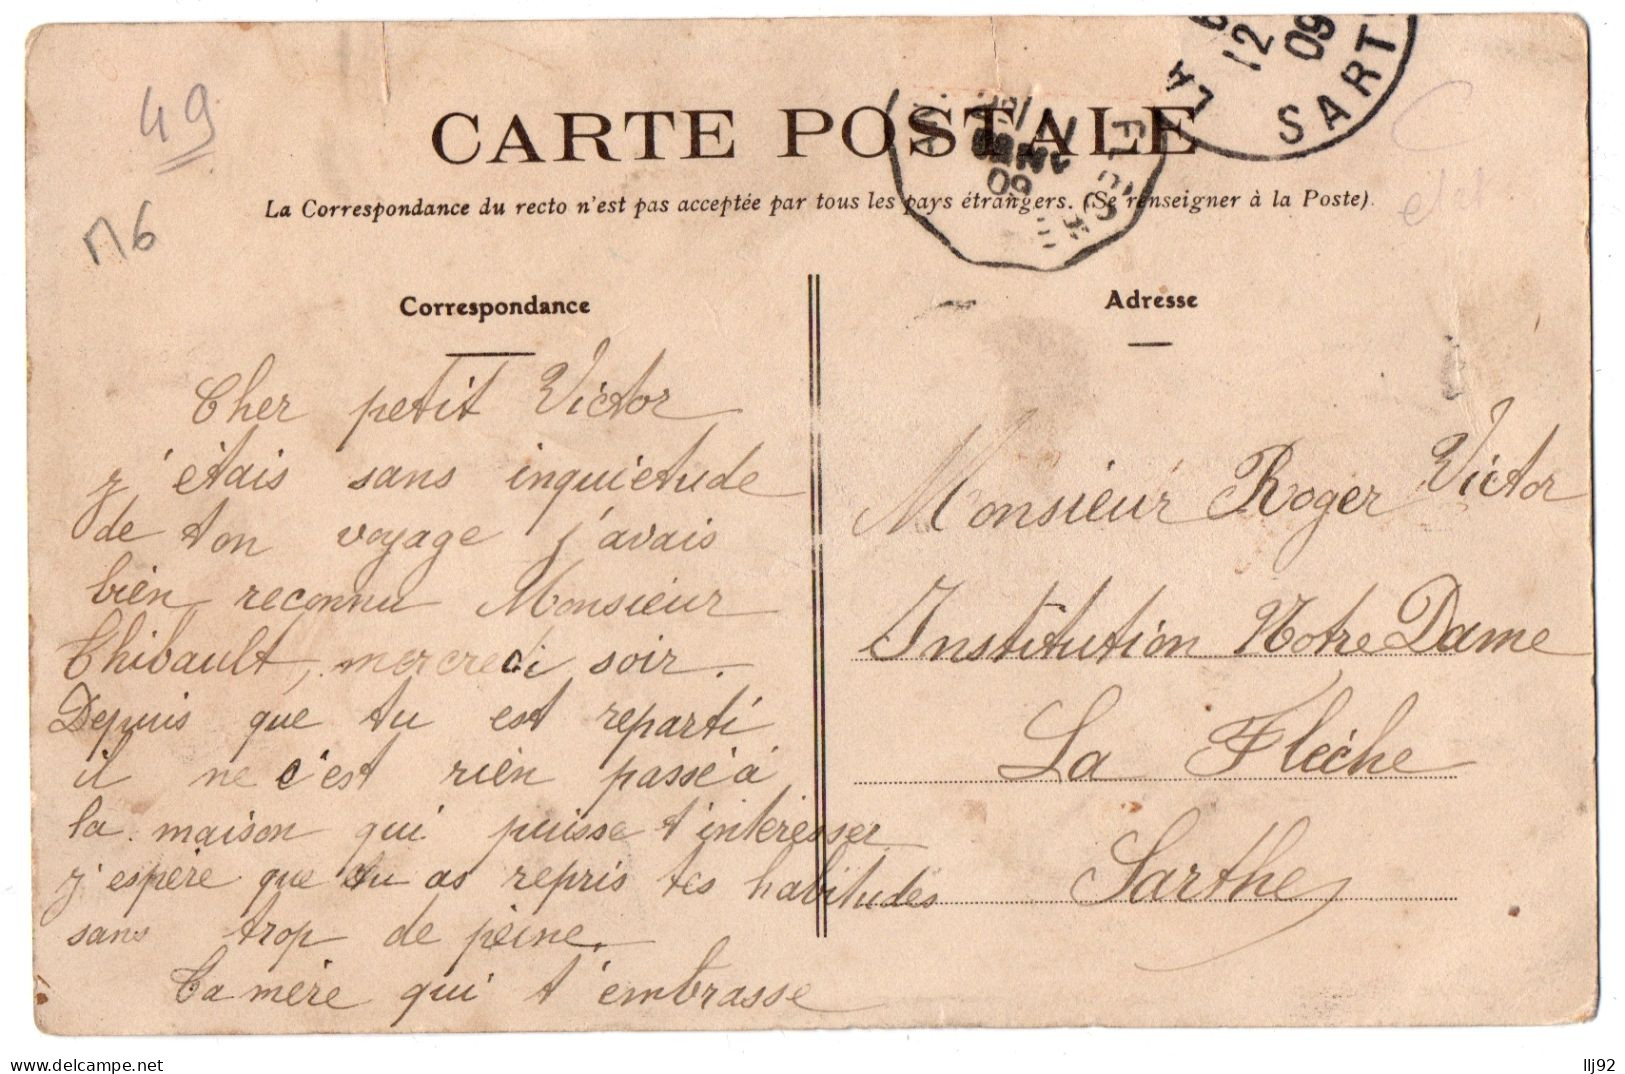 49
M6
CARTE POSTALE
La Correspondance du recto n'est pas acceptée par tous les pays étrangers. (Se renseigner à la Poste).
LA
12
09
SART
09
Correspondance
Cher petit Victor
j'étais sans inquiétude
de ton voyage j'avais
bien reconnu Monsieur
Thibault, mercredi soir.
Depuis que tu est reparti
il ne c'est rien passé à
la maison qui puisse t'intéresser
j'espère que tu as repris tes habitudes
sans trop de peine.
Ta mère qui t'embrasse
Adresse
Monsieur Roger Victor
Institution Notre Dame
La Flèche
Sarthe
delcampe.net
llj92